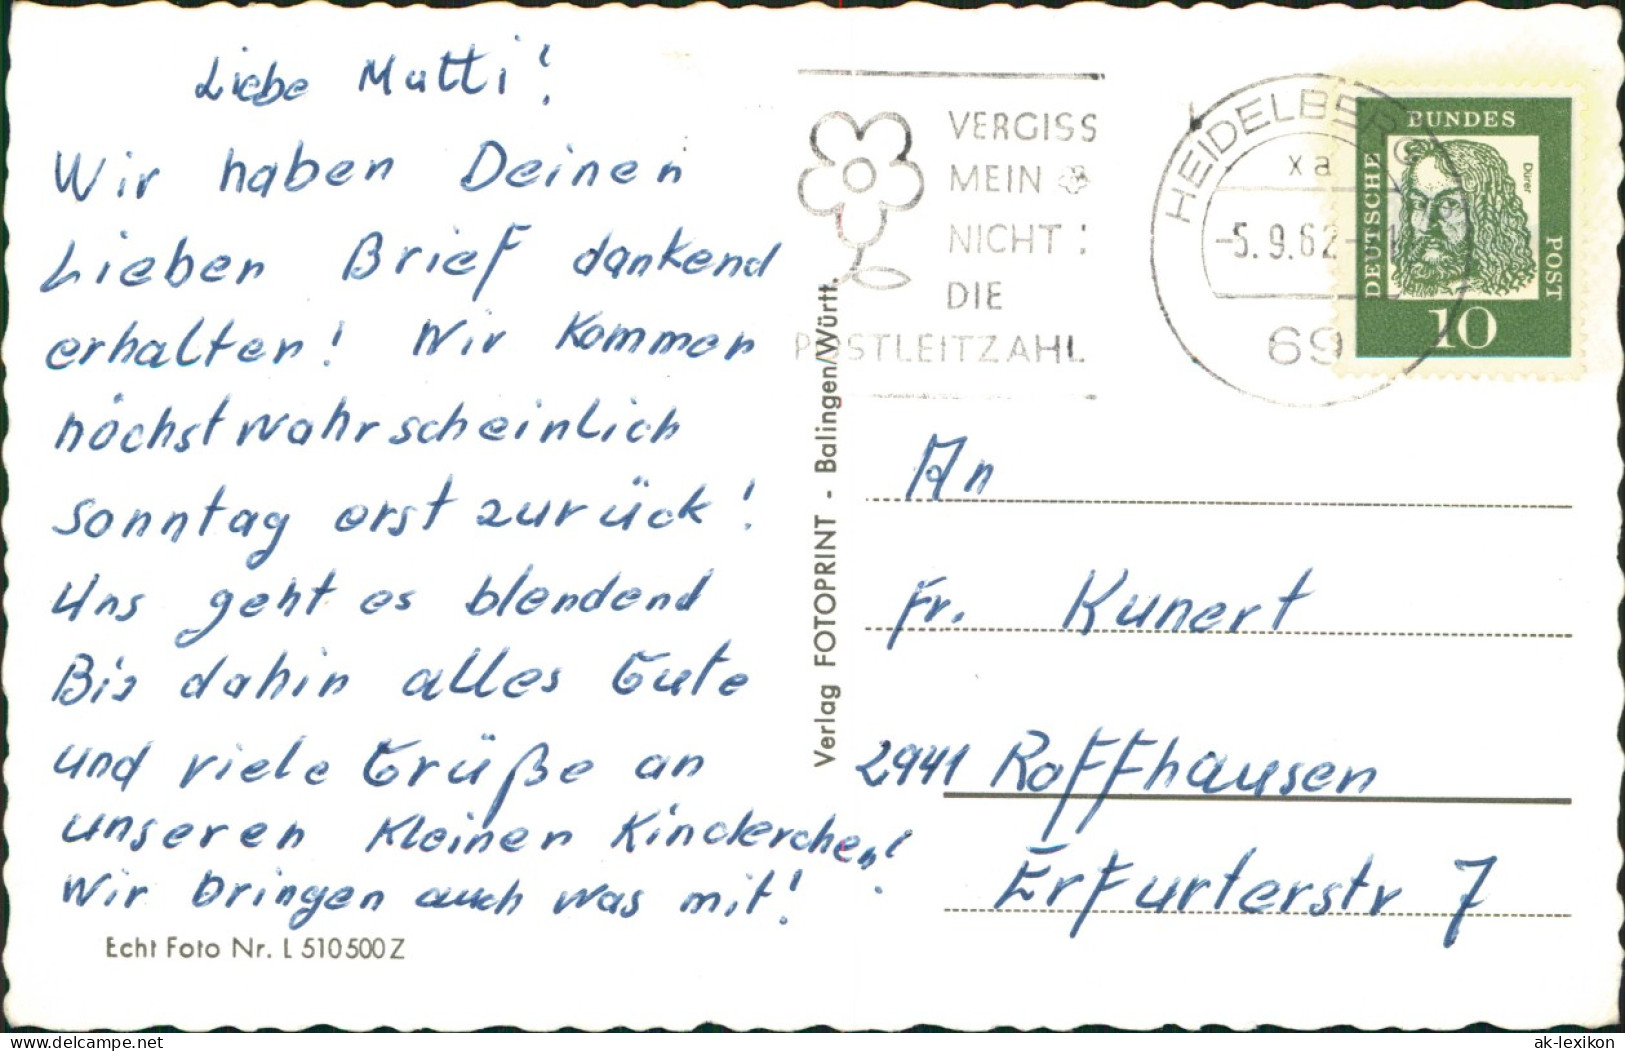 Liebe Mutti!
Wir haben Deinen
Lieben Brief dankend
erhalten! Wir kommen
höchstwahrscheinlich
Sonntag erst zurück!
Uns geht es blendend
Bis dahin alles Gute
und viele Grüße an
unseren kleinen Kinderchen!
Wir bringen auch was mit!
Echt Foto Nr. L 510500Z
Verlag FOTOPRINT - Balingen/Württ.
VERGISS
MEIN
NICHT:
DIE
POSTLEITZAHL
HEIDELBERG
xa
-5.9.62-
69
BUNDES
DEUTSCHE
POST
Dürer
10
An
Fr. Kunert
2941 Roffhausen
Erfurterstr 7
delcampe.net
ak-lexikon